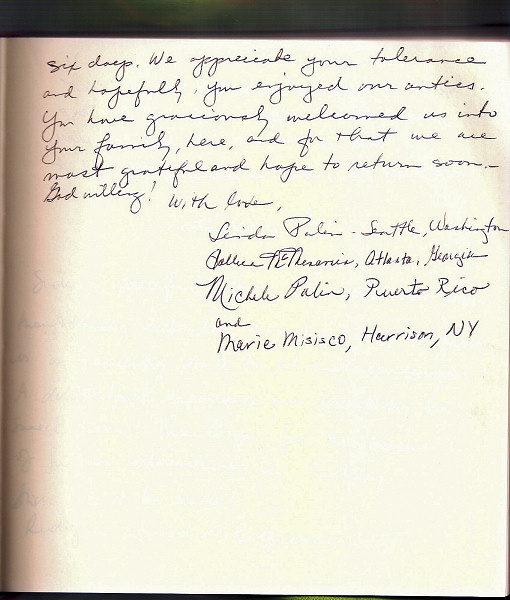 six days. We appreciate your tolerance
and hopefully, you enjoyed our antics.
You have graciously welcomed us into
your family, here, and for that we are
most grateful and hope to return soon.-
God willing! With love,
Linda Palin - Seattle, Washington
Atlanta, Georgia
Michele Palin, Puerto Rico
and
Marie Misisco, Harrison, NY